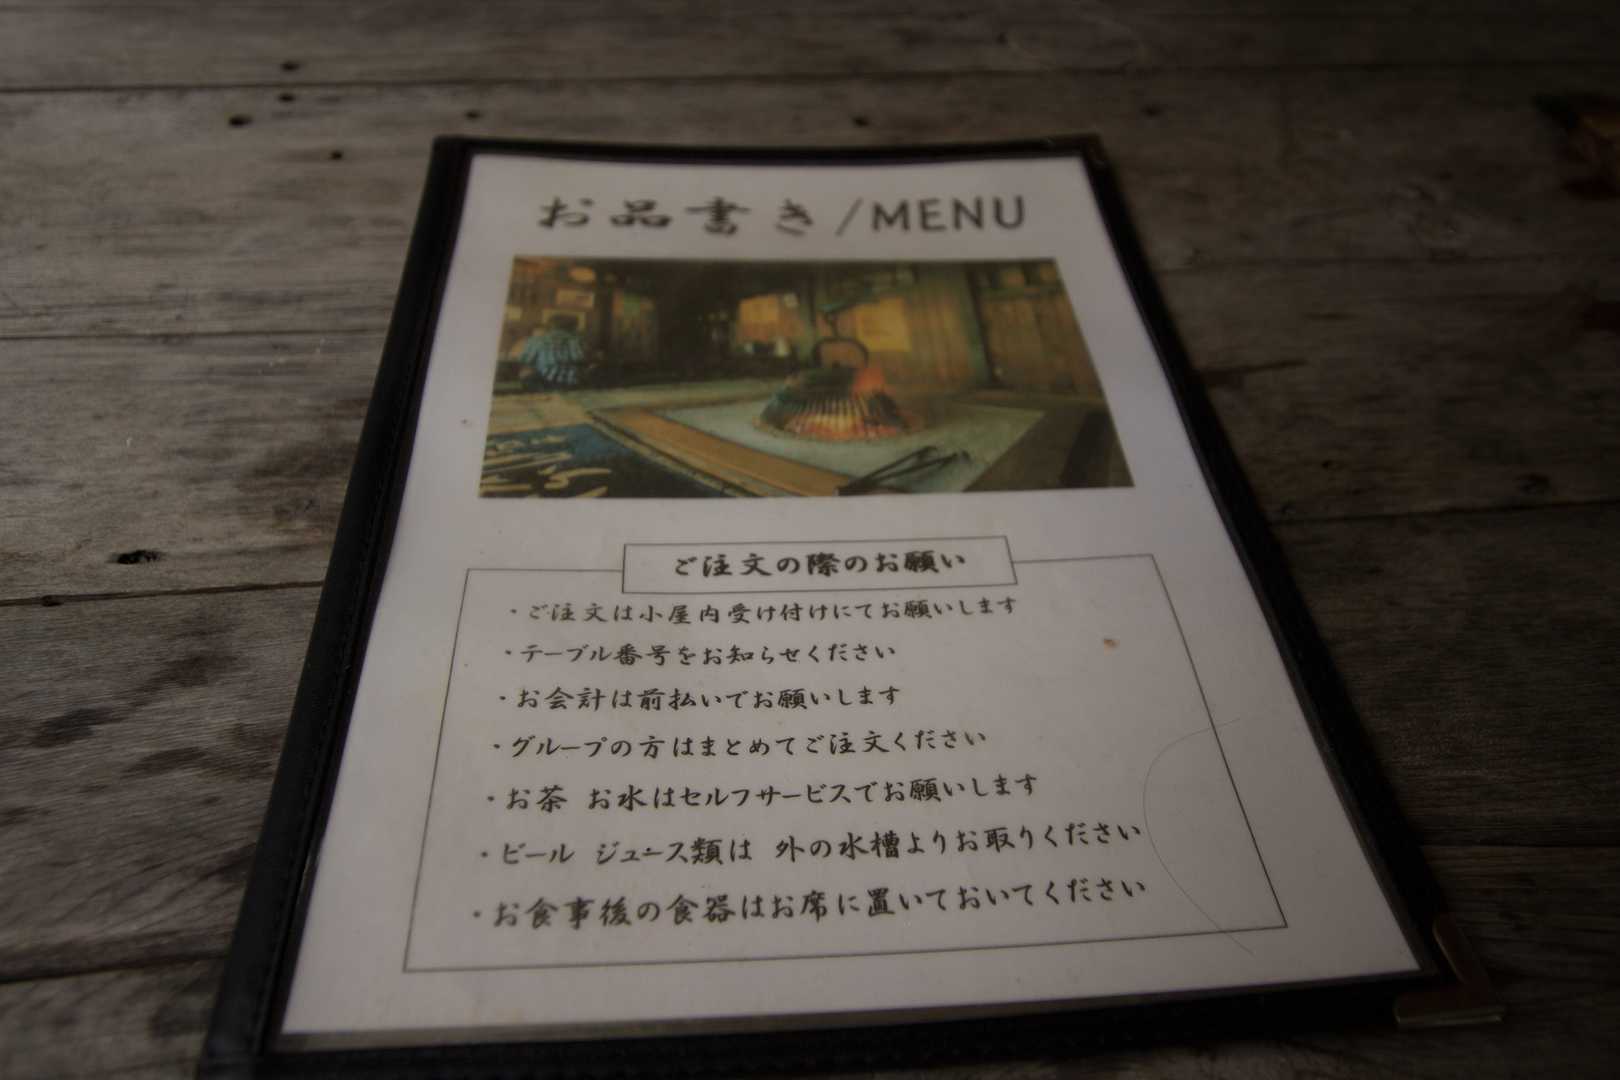 お品書き/MENU
ご注文の際のお願い
・ご注文は小屋内受け付けにてお願いします
・テーブル番号をお知らせください
・お会計は前払いでお願いします
・グループの方はまとめてご注文ください
・お茶 お水はセルフサービスでお願いします
・ビール ジュース類は 外の水槽よりお取りください
・お食事後の食器はお席に置いておいてください